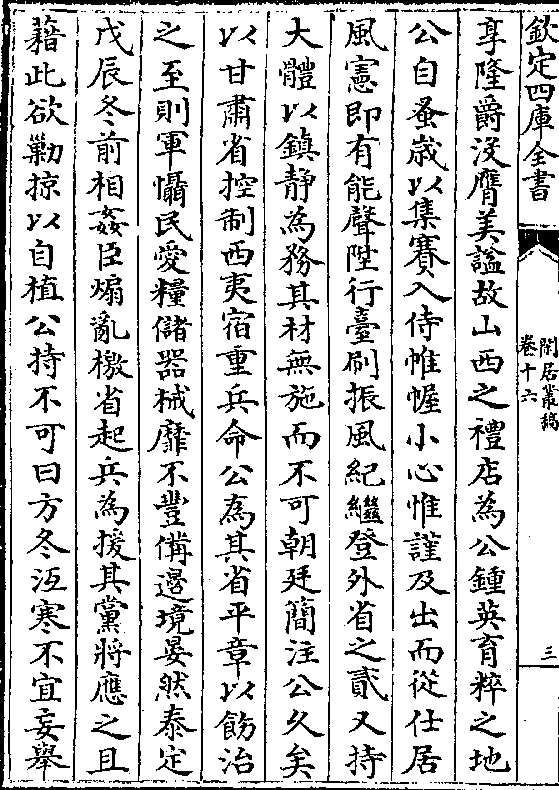 欽定四庫全書
閒居叢稿
卷十六
三
享隆爵沒膺美謚故山西之禮店為公鍾英育粹之地
公自蚤歲以集賽入侍帷幄小心惟謹及出而從仕居
風憲即有能聲陞行臺刷振風紀繼登外省之貳又持
大體以鎮静為務其材無施而不可朝廷簡注公久矣
以甘肅省控制西夷宿重兵命公為其省平章以飭治
之至則軍懾民愛糧儲器械靡不豐備邊境晏然泰定
戊辰冬前相姦臣煽亂檄省起兵為援其黨將應之且
藉此欲勦掠以自植公持不可曰方冬沍寒不宜妄舉